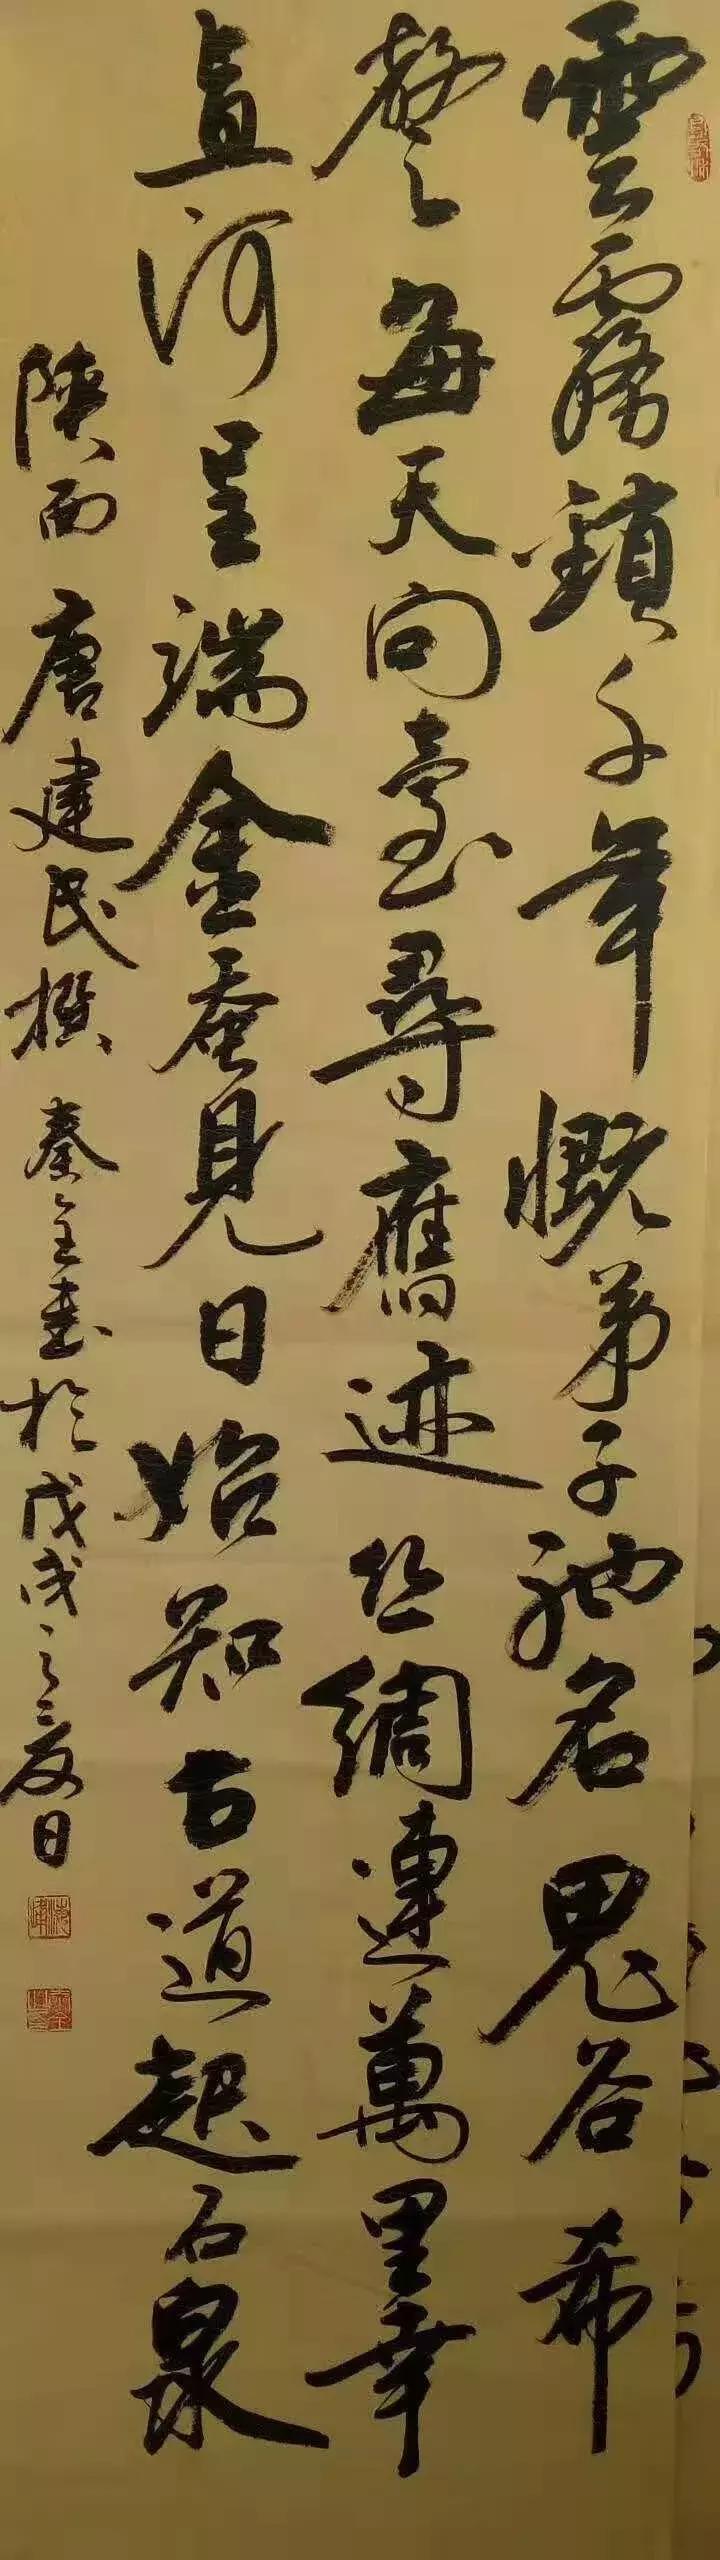 雲霧鎖千年慨弟子馳名鬼谷希
聲每天问臺尋舊迹丝綢連萬里幸
直河呈瑞金蚕見日始知古道起石泉
陝西唐建民撰秦全書於戊戌之夏日